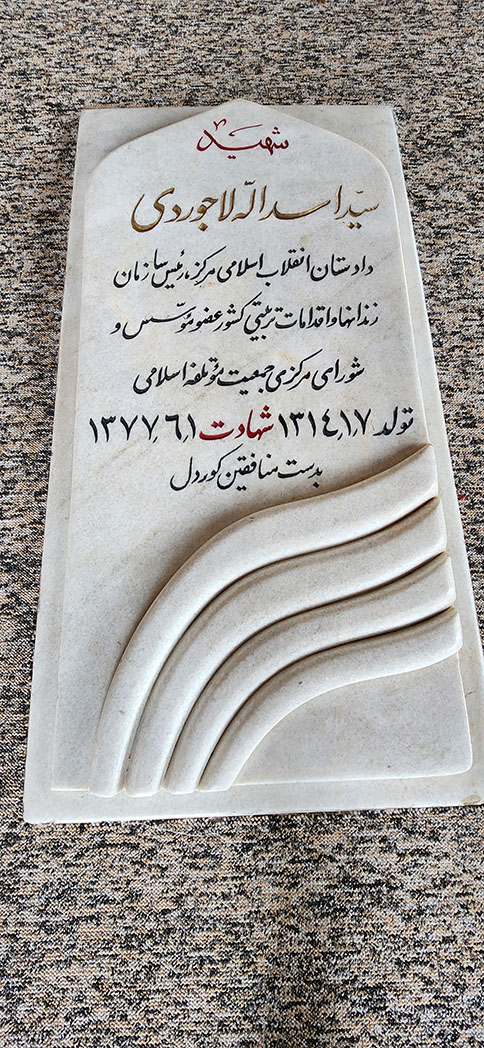 شهید
سیّد اسد الّه لاجوردی
دادستان انقلاب اسلامی مرکز، رئیس سازمان
زندانها و اقدامات تربیتی کشور عضو مؤسّس و
شورای مرکزی جمعیت مؤتلفه اسلامی
تولد ١٣١٤,١,٧ شهادت ١٣٧٧,٦,١
بدست منافقین کوردل